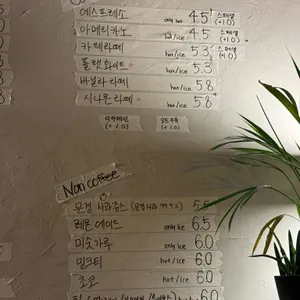 에스프레소 only hot 4.5 스페셜 (+1.0)
아메리카노 hot/ice 4.5 스페셜 (+1.0)
카페라떼 hot/ice 5.3 스페셜 (+1.0)
플랫화이트 hot/ice 5.3
바닐라라떼 hot/ice 5.8
시나몬라떼 hot/ice 5.8
디카페인 (+1.0) 오트우유 (+1.0)
Non coffee
문경 사과쥬스 5.5
레몬에이드 only ice 6.5
미숫가루 only ice 6.0
밀크티 hot/ice 6.0
초코 hot/ice 6.0